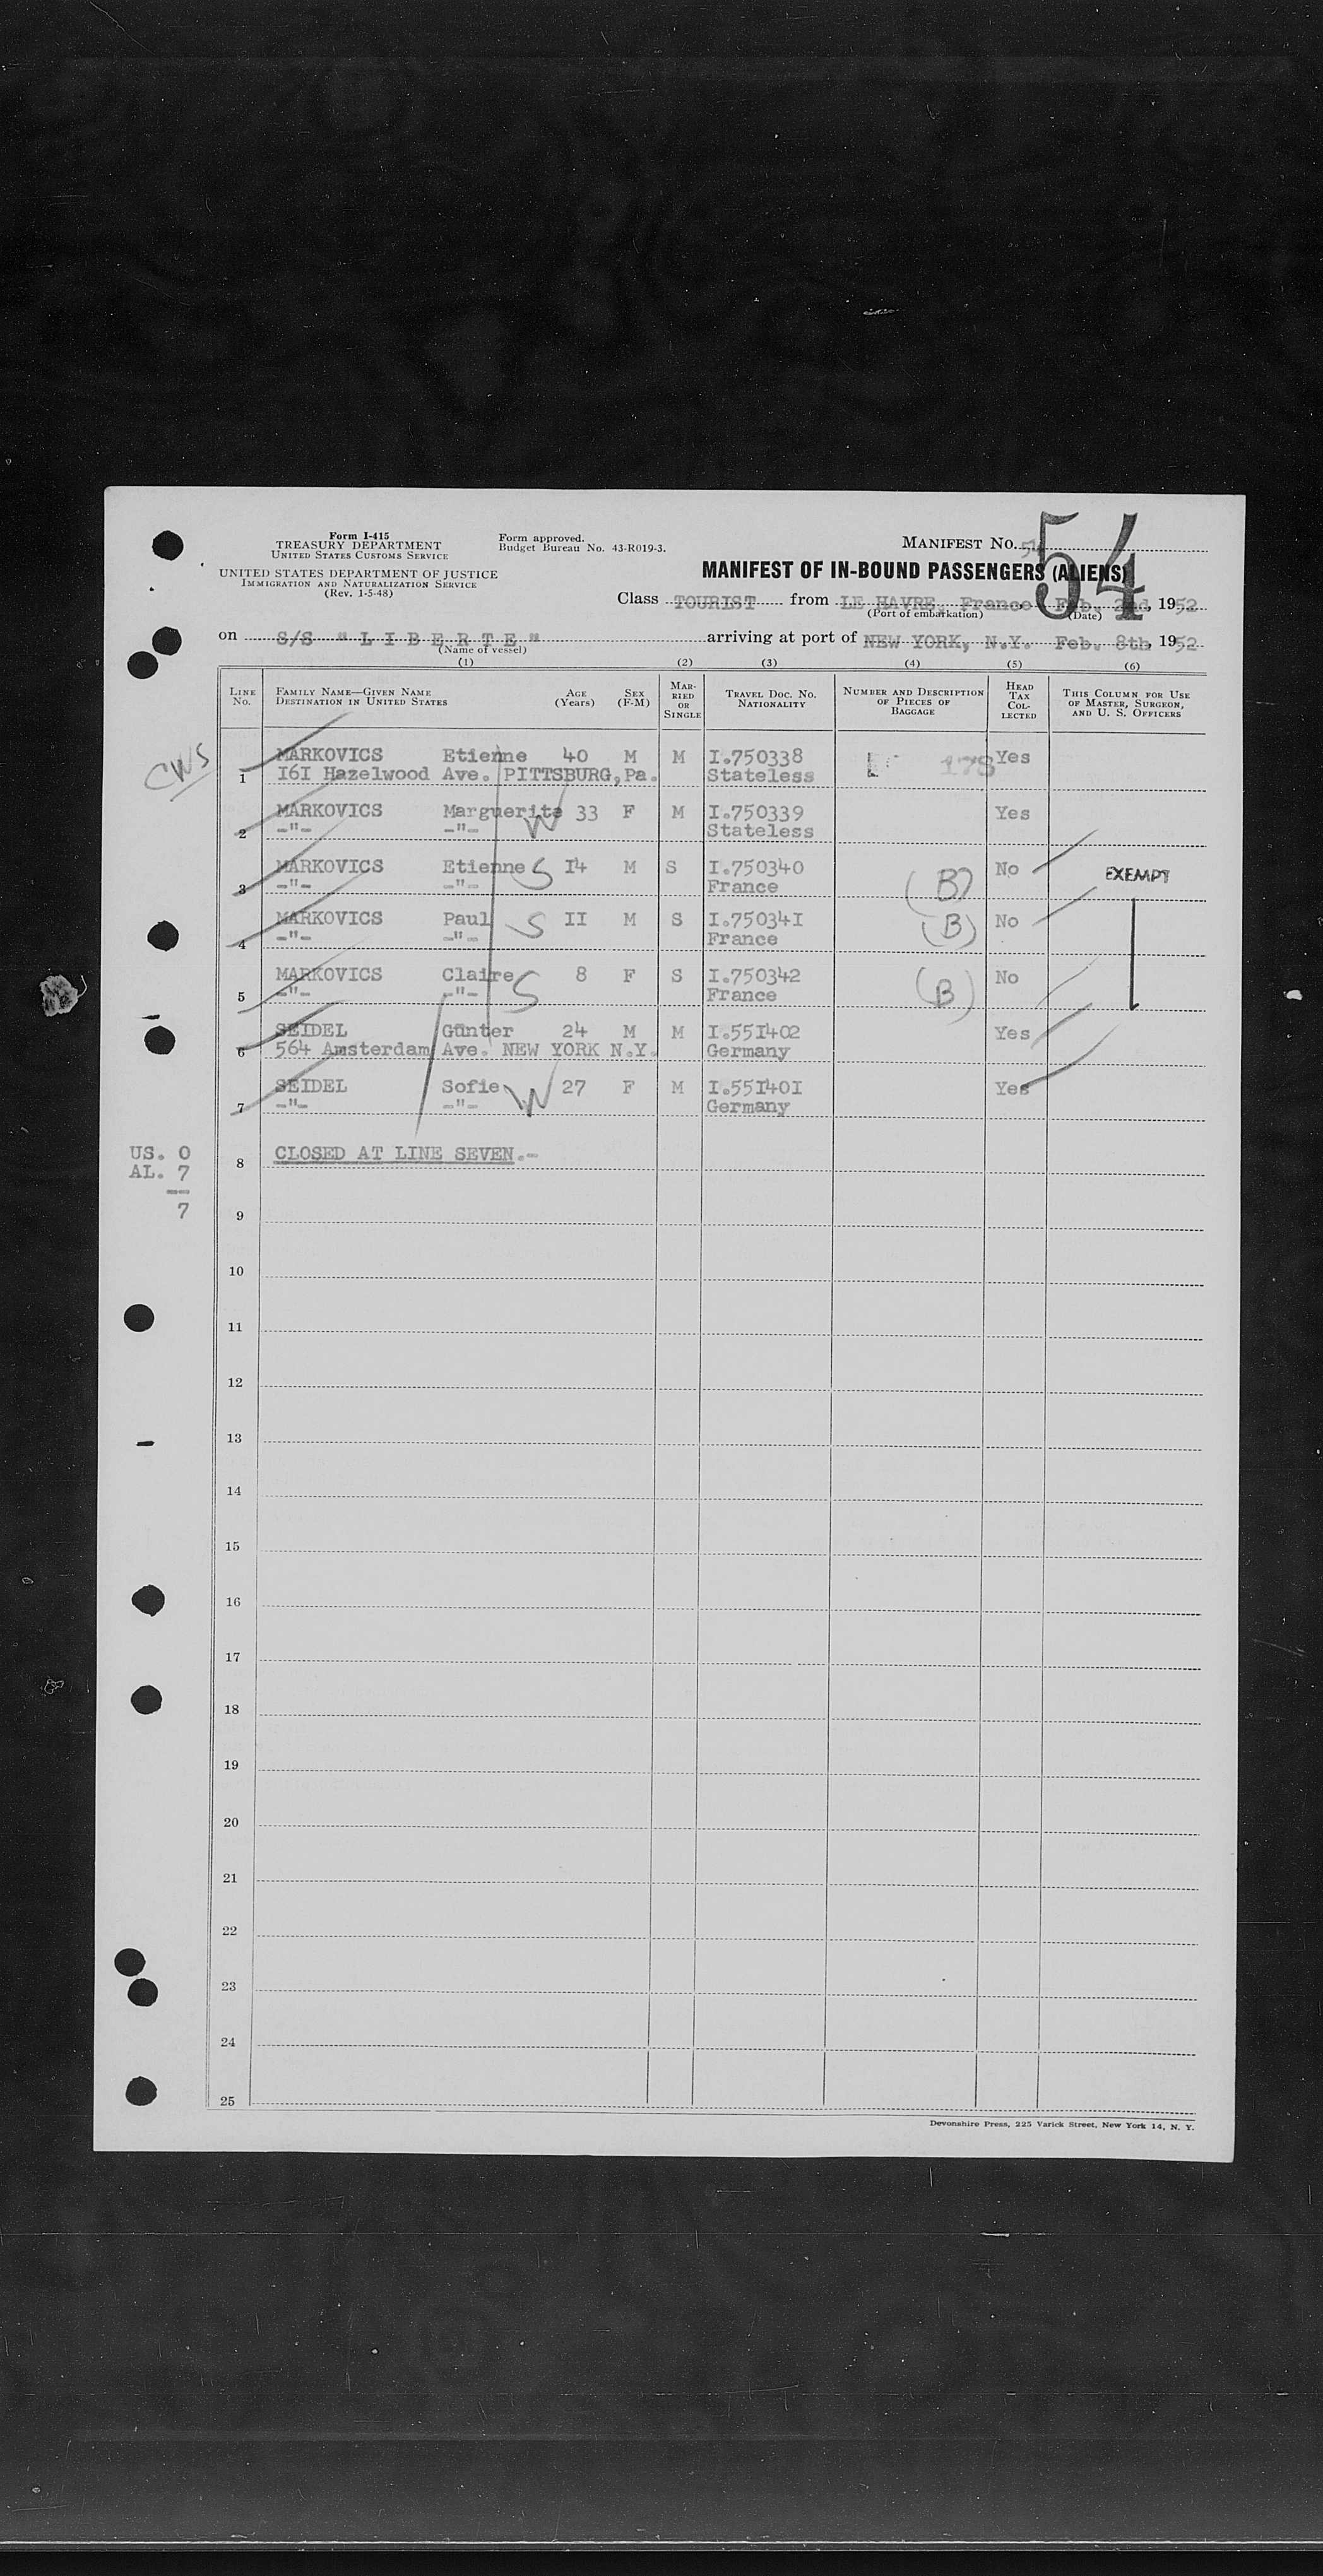 Form I-415
TREASURY DEPARTMENT
UNITED STATES CUSTOMS SERVICE
UNITED STATES DEPARTMENT OF JUSTICE
IMMIGRATION AND NATURALIZATION SERVICE
(Rev. 1-5-48)
Form approved.
Budget Bureau No. 43-R019-3.
MANIFEST No. 54
54
MANIFEST OF IN-BOUND PASSENGERS (ALIENS)
Class TOURIST from LE HAVRE, France Feb. 2nd, 1952
(Port of embarkation) (Date)
on S/S "LIBERTE" arriving at port of NEW YORK, N.Y. Feb. 8th, 1952
(Name of vessel)
(1) (2) (3) (4) (5) (6)
LINE No. FAMILY NAME—GIVEN NAME DESTINATION IN UNITED STATES AGE (Years) SEX (F-M) MARRIED OR SINGLE TRAVEL DOC. NO. NATIONALITY NUMBER AND DESCRIPTION OF PIECES OF BAGGAGE HEAD TAX COLLECTED THIS COLUMN FOR USE OF MASTER, SURGEON, AND U. S. OFFICERS
CWS
MARKOVICS Etienne 40 M M I.750338 178 Yes
1 I6I Hazelwood Ave. PITTSBURG, Pa. Stateless
MARKOVICS Marguerite W 33 F M I.750339 Yes
2 -"- -"- Stateless
MARKOVICS Etienne S I4 M S I.750340 (B) No EXEMPT
3 -"- -"- France
MARKOVICS Paul S II M S I.75034I (B) No
4 -"- -"- France
MARKOVICS Claire S 8 F S I.750342 (B) No
5 -"- -"- France
SEIDEL Günter 24 M M I.55I402 Yes
6 564 Amsterdam Ave. NEW YORK N.Y. Germany
SEIDEL Sofie W 27 F M I.55I40I Yes
7 -"- -"- Germany
US. 0
AL. 7
7
8 CLOSED AT LINE SEVEN.-
9
10
11
12
13
14
15
16
17
18
19
20
21
22
23
24
25
Devonshire Press, 225 Varick Street, New York 14, N. Y.